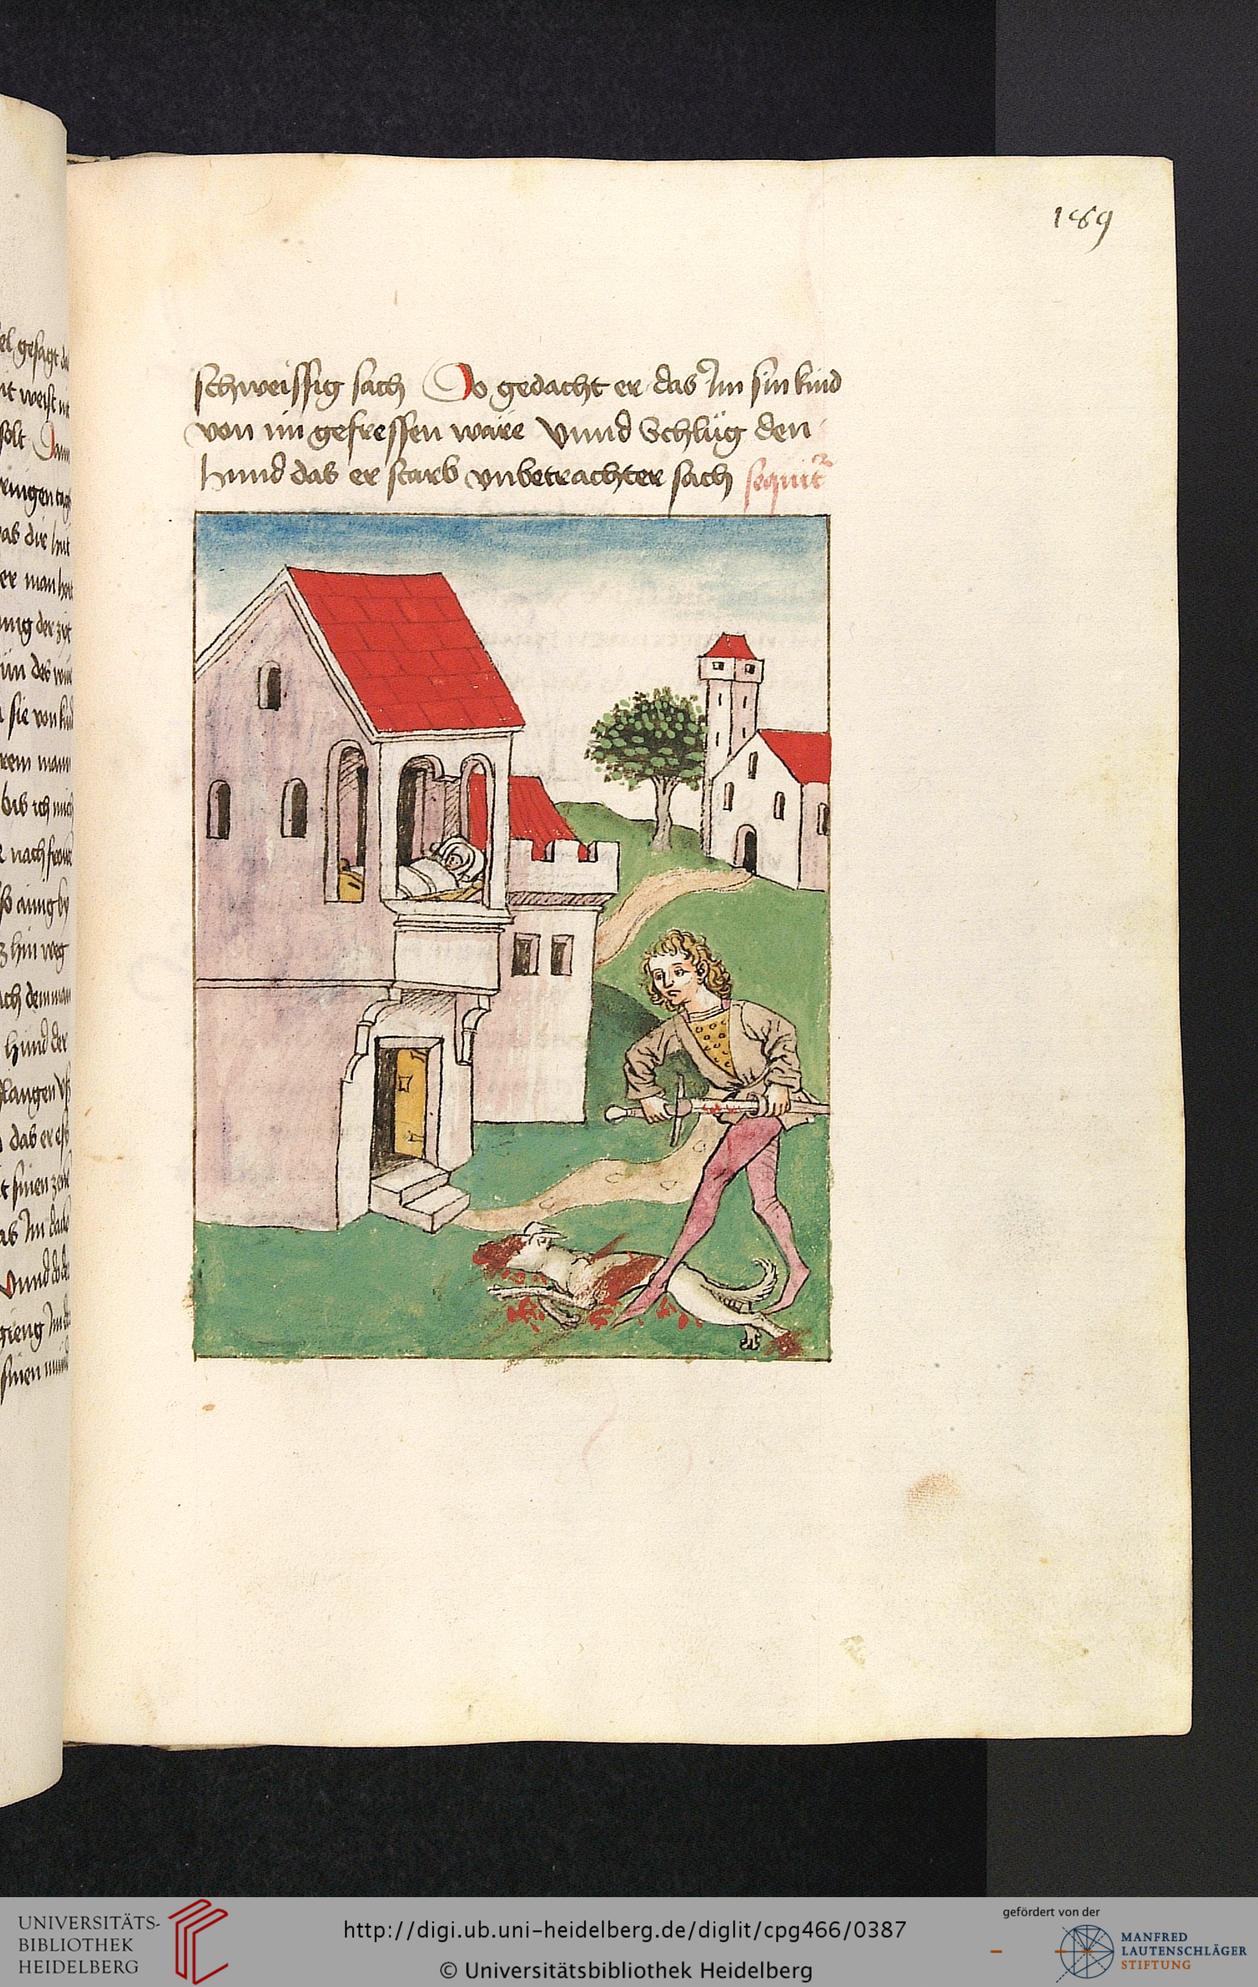 189
schweissig sach Do gedacht er das Im sin kind
von im gefressen wäre Vnnd Schlüg den
hund das er starb vnbetrachter sach sequitr
gesagt
weist
solt Dann
ringen
das dir
er man
ung der zyt
sie von
rem mann
bis ich mich
nach
so ging by
hin weg
ach dem man
hund der
slangen
das er
sinen
as Im
Vnnd do
gieng Im
sinen
UNIVERSITÄTS-
BIBLIOTHEK
HEIDELBERG
http://digi.ub.uni-heidelberg.de/diglit/cpg466/0387
© Universitätsbibliothek Heidelberg
gefördert von der
MANFRED
LAUTENSCHLÄGER
STIFTUNG